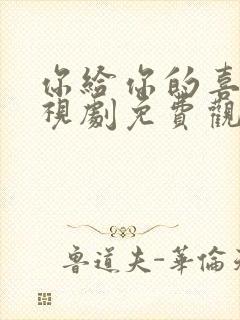 你給你的喜
視劇免費觀
魯道夫-華倫